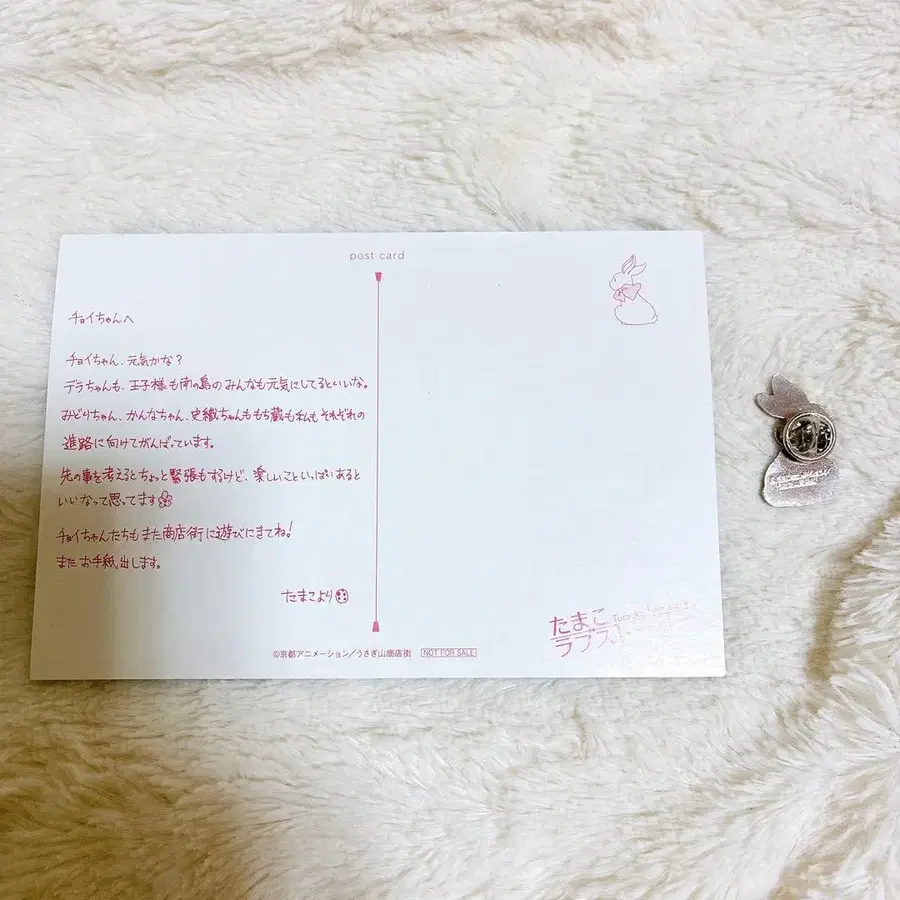 post card
チョイちゃんへ
チョイちゃん、元気かな?
デラちゃんも、王子様も南の島のみんなも元気にしてるといいな。
みどりちゃん、かんなちゃん、史織ちゃんももち蔵も私もそれぞれの
進路に向けてがんばっています。
先の事を考えるとちょっと緊張もするけど、楽しいこといっぱいあると
いいなって思ってます
チョイちゃんたちもまた商店街に遊びにきてね!
またお手紙出します。
たまこより
©京都アニメーション/うさぎ山商店街 NOT FOR SALE
たまこ
ラブスト